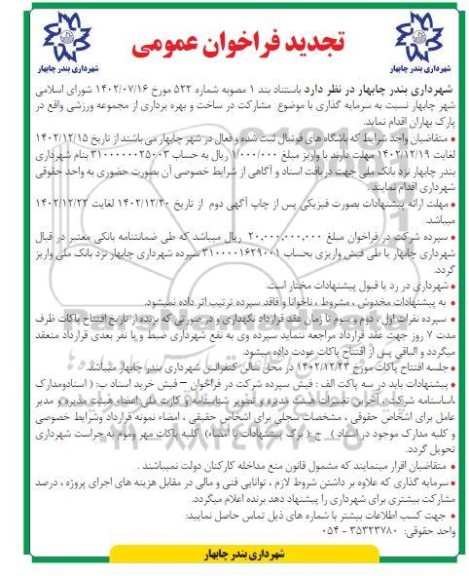 تجدید فراخوان عمومی
شهرداری بندر چابهار
شهرداری بندر چابهار
شهرداری بندر چابهار در نظر دارد باستناد بند ۱ مصوبه شماره ۵۲۲ مورخ ۱۴۰۲/۰۷/۱۶ شورای اسلامی
شهر چابهار نسبت به سرمایه گذاری با موضوع مشارکت در ساخت و بهره برداری از مجموعه ورزشی واقع در
پارک بهاران اقدام نماید.
• متقاضیان واجد شرایط که باشگاه های فوتبال ثبت شده و فعال در شهر چابهار می باشند از تاریخ ۱۴۰۲/۱۲/۱۵
لغایت ۱۴۰۲/۱۲/۱۹ مهلت دارند با واریز مبلغ ۱/۰۰۰/۰۰۰ ریال به حساب ۳۱۰۰۰۰۰۰۲۵۰۰۳ بنام شهرداری
بندر چابهار نزد بانک ملی جهت دریافت اسناد و آگاهی از شرایط خصوصی آن بصورت حضوری به واحد حقوقی
شهرداری اقدام نمایند.
• مهلت ارائه پیشنهادات بصورت فیزیکی پس از چاپ آگهی دوم از تاریخ ۱۴۰۲/۱۲/۲۰ لغایت ۱۴۰۲/۱۲/۲۲
میباشد.
• سپرده شرکت در فراخوان مبلغ ۲۰.۰۰۰.۰۰۰.۰۰۰ ریال میباشد که طی ضمانتنامه بانکی معتبر در قبال
شهرداری چابهار یا طی فیش واریزی بحساب ۳۱۰۰۰۰۱۶۲۹۰۰۱ سپرده شهرداری چابهار نزد بانک ملی واریز
گردد.
• شهرداری در رد یا قبول پیشنهادات مختار است.
• به پیشنهادات مخدوش ، مشروط ، ناخوانا و فاقد سپرده ترتیب اثر داده نمیشود.
• سپرده نفرات اول ، دوم و سوم تا زمان عقد قرارداد نگهداری و در صورتی که برنده از تاریخ افتتاح پاکات ظرف
مدت ۷ روز جهت عقد قرارداد مراجعه ننماید سپرده وی به نفع شهرداری ضبط و با نفر بعدی قرارداد منعقد
میگردد و الباقی پس از افتتاح پاکات عودت داده میشود.
• جلسه افتتاح پاکات مورخ ۱۴۰۲/۱۲/۲۳ در محل سالن کنفرانس شهرداری بندر چابهار میباشد.
• پیشنهادات باید در سه پاکت الف : فیش سپرده شرکت در فراخوان – فیش خرید اسناد ب: ( اسنادومدارک
،اساسنامه شرکت ، آخرین تغییرات هیئت مدیره و تصویر شناسنامه و کارت ملی اعضاء هیئت مدیره و مدیر
عامل برای اشخاص حقوقی ، مشخصات سجلی برای اشخاص حقیقی ، امضاء نمونه قرارداد وشرایط خصوصی
و کلیه مدارک موجود در اسناد ) ج :( برگ پیشنهادات با امضاء) کلیه پاکات مهر وموم به حراست شهرداری
تحویل گردد.
• متقاضیان اقرار مینمایند که مشمول قانون منع مداخله کارکنان دولت نمیباشند .
• سرمایه گذاری که علاوه بر داشتن شروط لازم ، توانایی فنی و مالی در مقابل هزینه های اجرای پروژه ، درصد
مشارکت بیشتری برای شهرداری را پیشنهاد دهد برنده اعلام میگردد.
• جهت کسب اطلاعات بیشتر با شماره های ذیل تماس حاصل نمایید:
واحد حقوقی: ۳۵۳۲۳۷۸۰ - ۰۵۴
شهرداری بندر چابهار